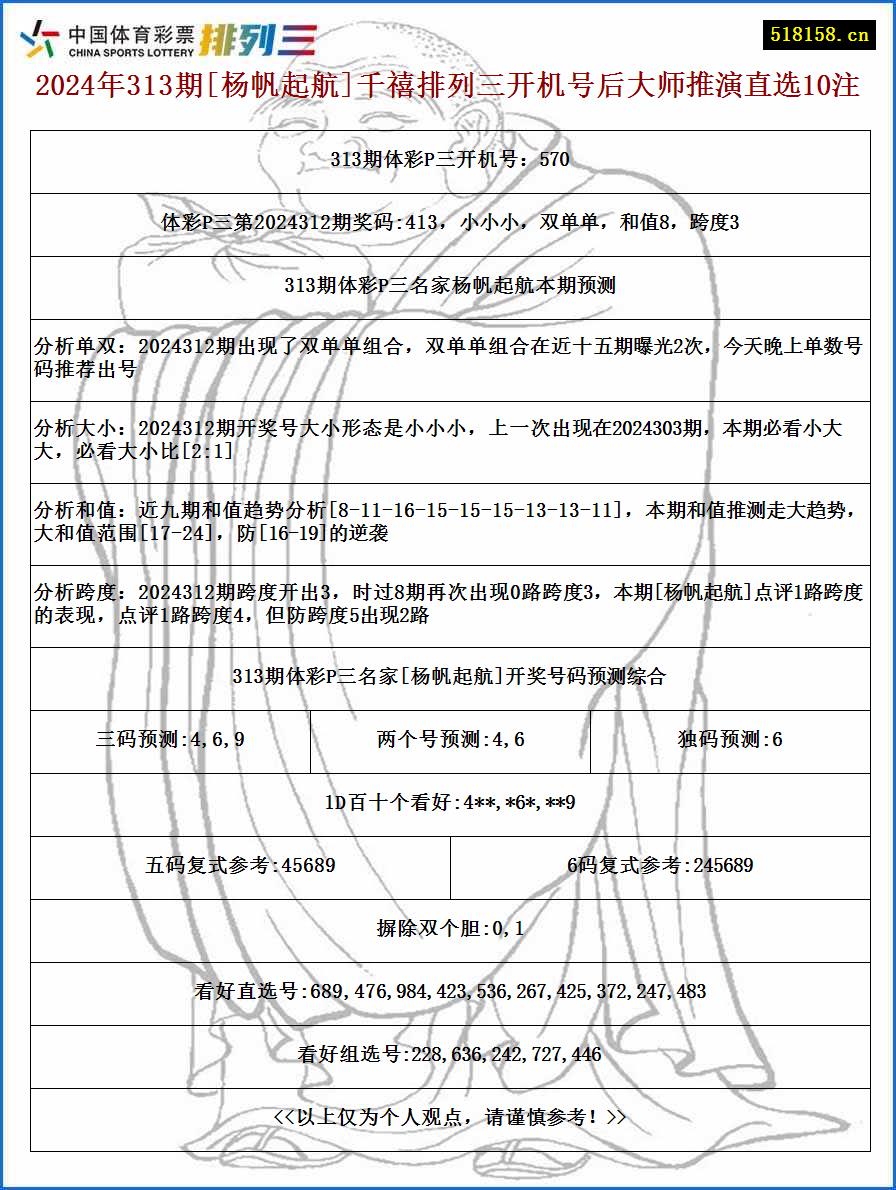 中国体育彩票
CHINA SPORTS LOTTERY
排列三
518158.cn
2024年313期[杨帆起航]千禧排列三开机号后大师推演直选10注
313期体彩P三开机号：570
体彩P三第2024312期奖码:413，小小小，双单单，和值8，跨度3
313期体彩P三名家杨帆起航本期预测
分析单双：2024312期出现了双单单组合，双单单组合在近十五期曝光2次，今天晚上单数号
码推荐出号
分析大小：2024312期开奖号大小形态是小小小，上一次出现在2024303期，本期必看小大
大，必看大小比[2:1]
分析和值：近九期和值趋势分析[8-11-16-15-15-15-13-13-11]，本期和值推测走大趋势，
大和值范围[17-24]，防[16-19]的逆袭
分析跨度：2024312期跨度开出3，时过8期再次出现0路跨度3，本期[杨帆起航]点评1路跨度
的表现，点评1路跨度4，但防跨度5出现2路
313期体彩P三名家[杨帆起航]开奖号码预测综合
三码预测:4,6,9
两个号预测:4,6
独码预测:6
1D百十个看好:4**,*6*,**9
五码复式参考:45689
6码复式参考:245689
摒除双个胆:0,1
看好直选号:689,476,984,423,536,267,425,372,247,483
看好组选号:228,636,242,727,446
<<以上仅为个人观点，请谨慎参考！>>